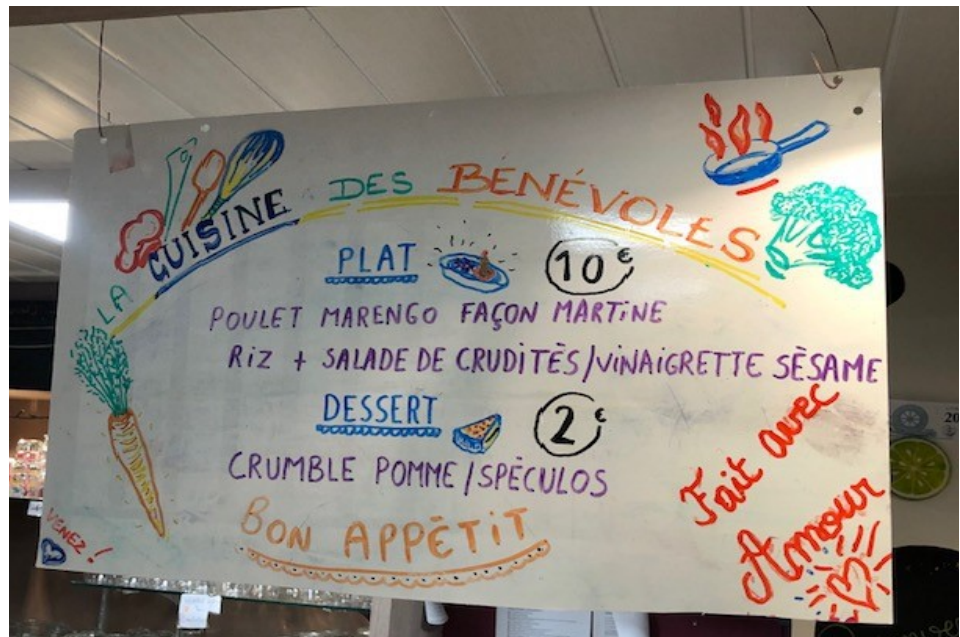 LA CUISINE DES BÉNÉVOLES
PLAT 10€
POULET MARENGO FAÇON MARTINE
RIZ + SALADE DE CRUDITÉS/VINAIGRETTE SÈSAME
DESSERT 2€
CRUMBLE POMME/SPÉCULOS
BON APPÉTIT
VENEZ!
Fait avec
Amour
20